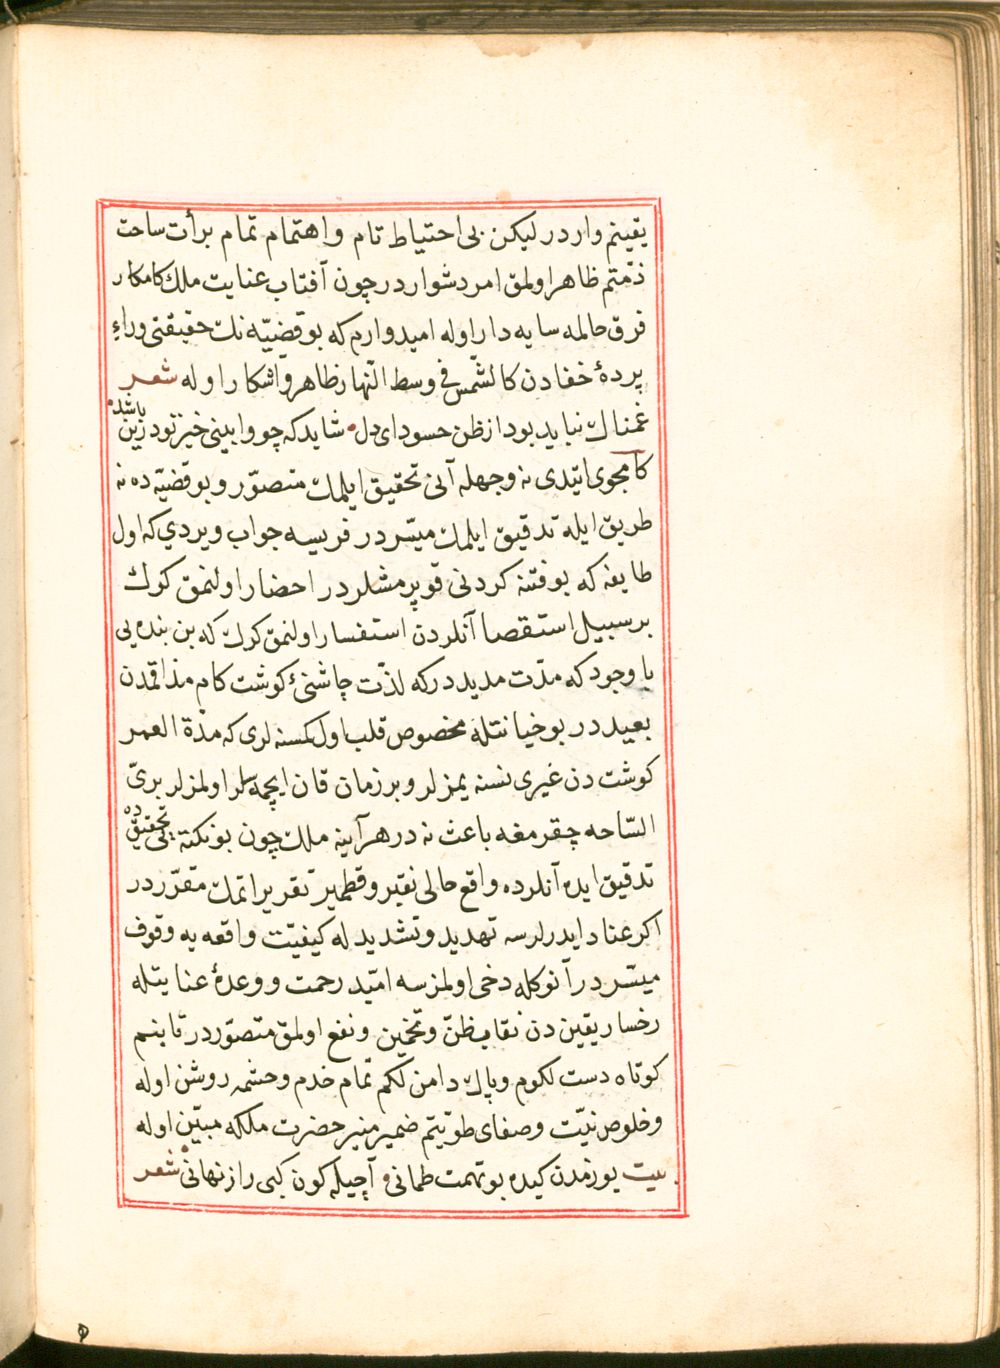 یقینم واردر لیکن بی احتیاط تام و اهتمام تمام برأت ساحت
ذمّتم ظاهر اولمق امر دشواردر چون آفتاب عنایت ملك کامکار
فرق حالمه سایه دار اوله امیدوارم که بو قضیّه نك حقیقتی وراءِ
پردهٔ خفادن کالشّمس فی وسط النّهار ظاهر و آشکار اوله شعر
غمناك نباید بود از ظن حسود ای دل شاید که چو وا بینی خیر تو درین باشد
کامجوی ایتدی نه وجهله آنی تحقیق ایلمك متصوّر و بو قضیّه ده نه
طریق ایله تدقیق ایلمك میسّردر فریسه جواب ویردی که اول
طایفه که بو فتنه کردنی قوپرمشلردر احضار اولنمق کرك
بر سبیل استقصا آنلردن استفسار اولنمق کرك که بن بنده یی
با وجود که مدّت مدیددر که لذّت چاشنیٔ کوشت کام مذاقمدن
بعیددر بو خیانتله مخصوص قلب اول کسنه لری که مدّة العمر
کوشت دن غیری نسنه یمزلر و بر زمان قان ایچمه سلر اولمزلر بریّ
السّاحه چقرمغه باعث نه در هر آینه ملك چون بو نکته یی تحقیق ده
تدقیق ایده آنلر ده واقع حالی نقیر و قطمیر تقریر اتمك مقرّردر
اکر عناد ایدرلرسه تهدید و تشدید له کیفیّت واقعه یه وقوف
میسّردر آنوکله دخی اولمزسه امّید رحمت و وعدهٔ عنایتله
رخسار یقین دن نقاب ظنّ و تخمین و نفع اولمق متصوّردر تا بنم
کوتاه دست لکوم و پاك دامن لکم تمام خدم و حشمه روشن اوله
و خلوص نیّت و صفای طویّتم ضمیر منیر حضرت ملکه مبیّن اوله
بیت یوزمدن کیده بو تهمت طمانی آچیله کون کبی راز نهانی شعر